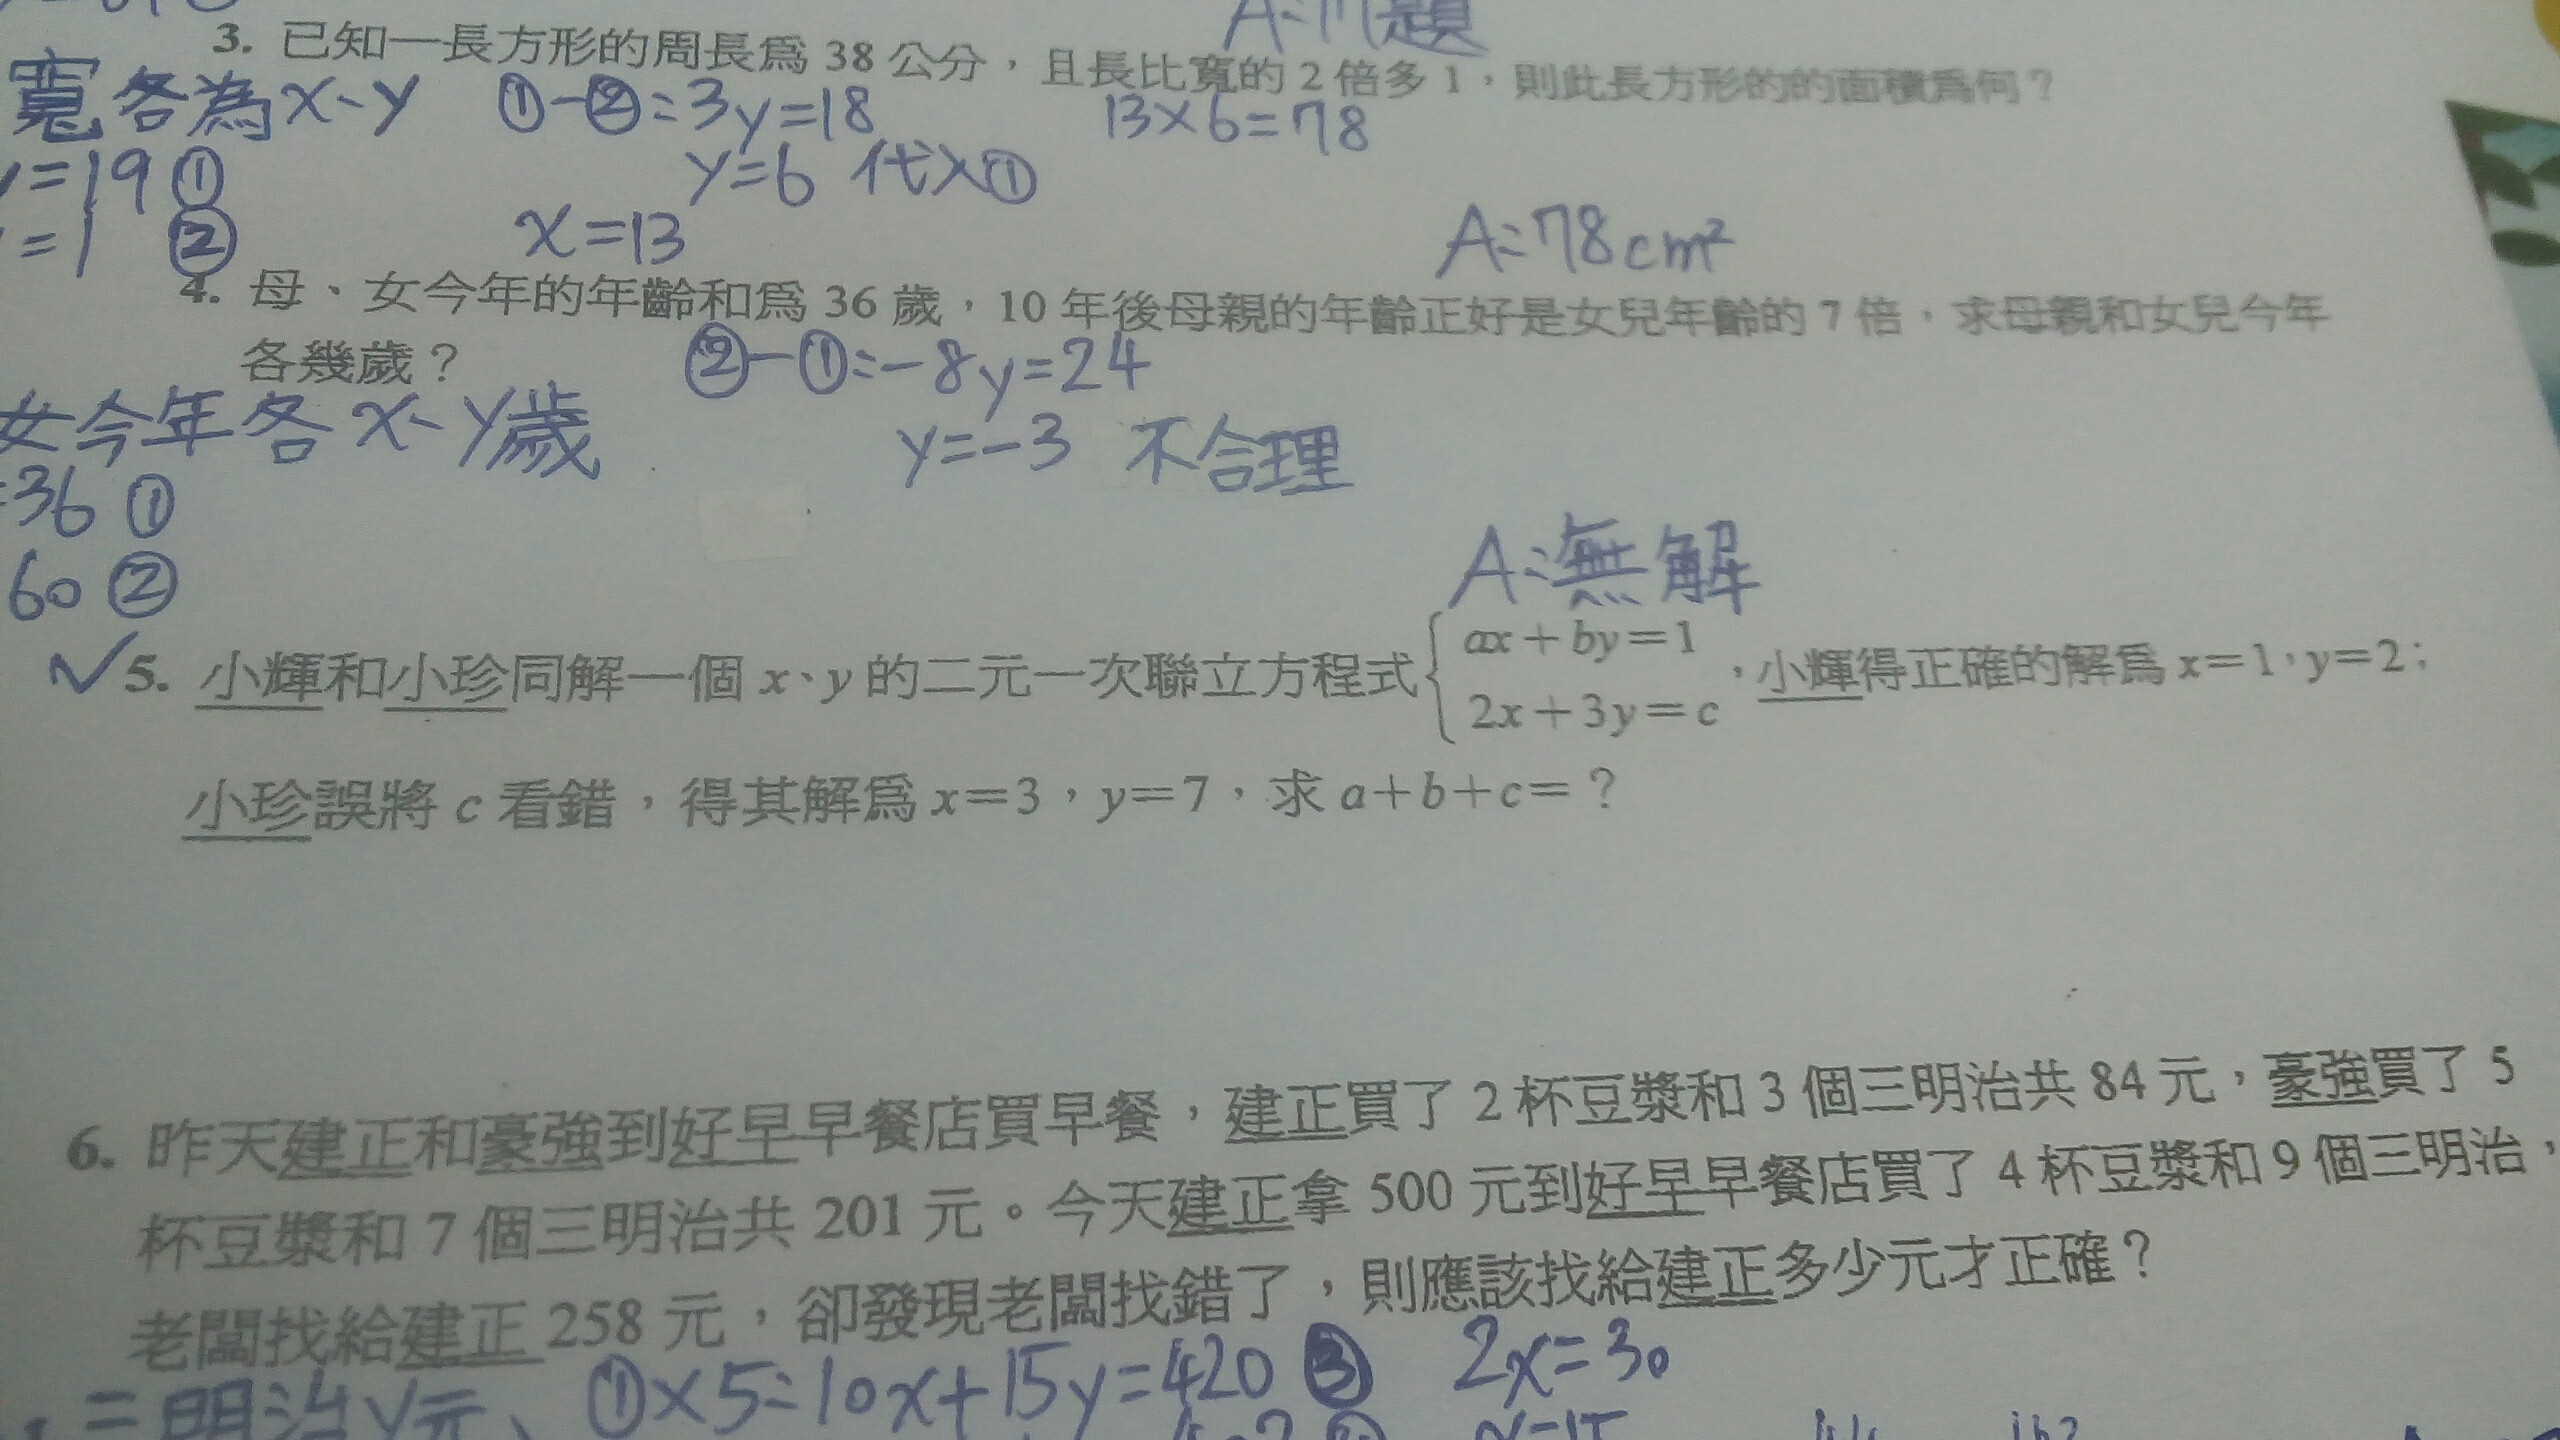 A:17題
3. 已知一長方形的周長為 38 公分，且長比寬的 2 倍多 1，則此長方形的的面積為何？
寬各為x、y ①-②=3y=18 13×6=78
y=19 ① y=6 代入①
=1 ② x=13 A:78cm²
4. 母、女今年的年齡和為 36 歲，10 年後母親的年齡正好是女兒年齡的 7 倍，求母親和女兒今年
各幾歲？ ②-①=-8y=24
女今年各x、y歲 y=-3 不合理
=36 ①
60 ② A:無解
✓5. 小輝和小珍同解一個 x、y 的二元一次聯立方程式{ax+by=1
2x+3y=c，小輝得正確的解為 x=1，y=2；
小珍誤將 c 看錯，得其解為 x=3，y=7，求 a+b+c=？
6. 昨天建正和豪強到好早早餐店買早餐，建正買了 2 杯豆漿和 3 個三明治共 84 元，豪強買了 5
杯豆漿和 7 個三明治共 201 元。今天建正拿 500 元到好早早餐店買了 4 杯豆漿和 9 個三明治，
老闆找給建正 258 元，卻發現老闆找錯了，則應該找給建正多少元才正確？
三明治y元、 ①×5=10x+15y=420 ③ 2x=30
x=15